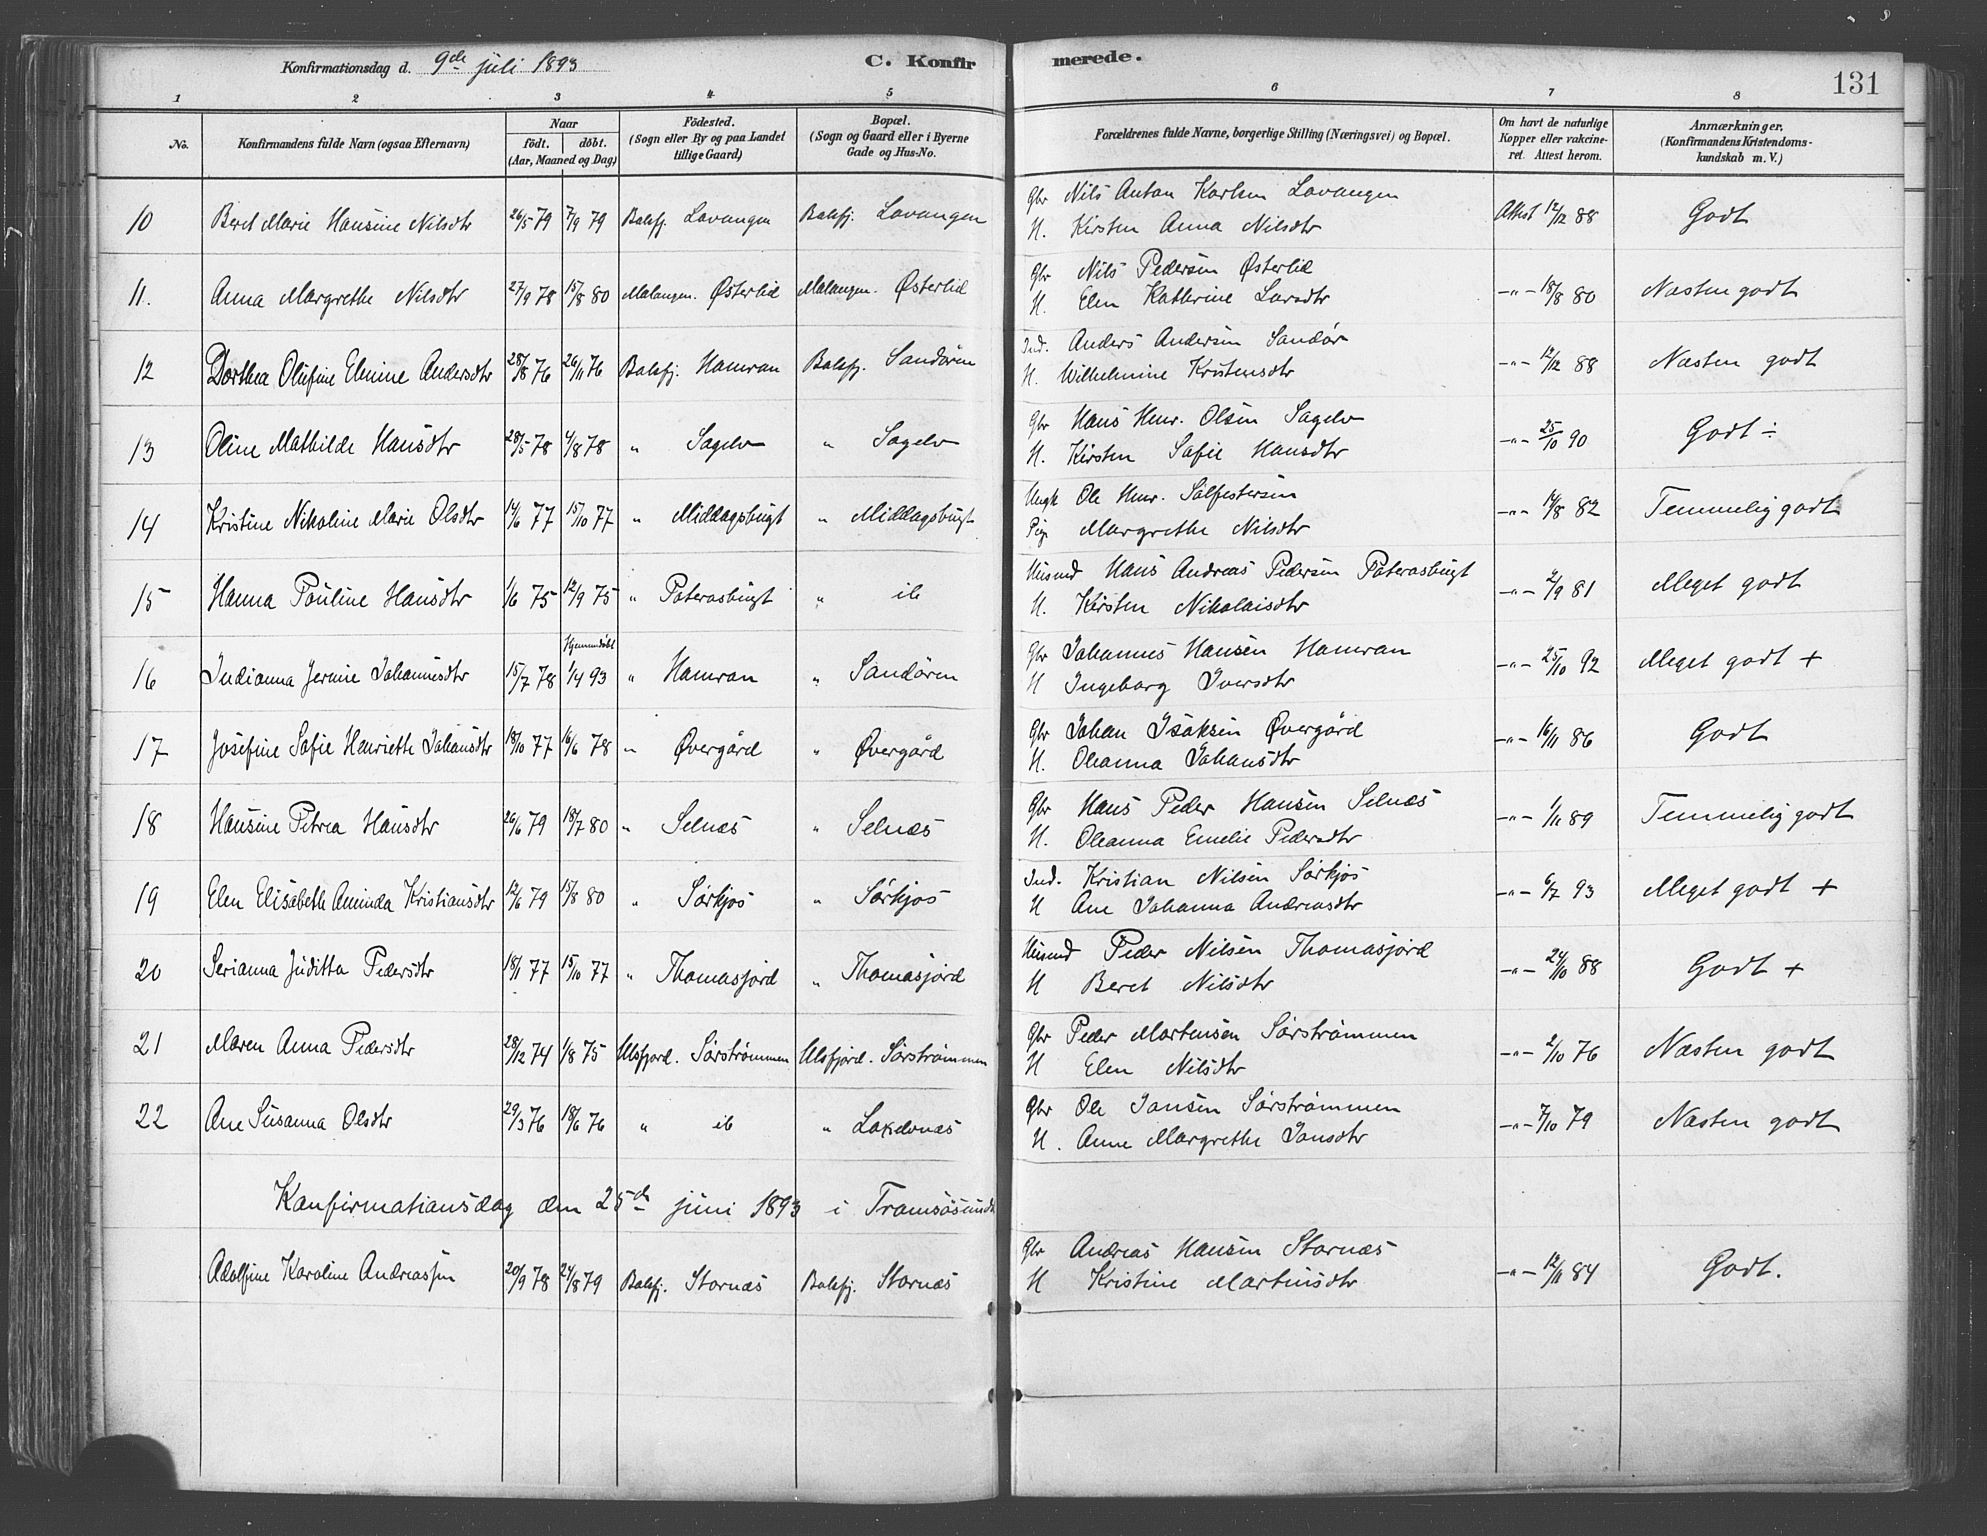 Konfirmationsdag d. 9de juli 1893 C. Konfirmerede. 131
1 2 3 4 5 6 7 8
No. Konfirmandens fulde Navn (ogsaa Efternavn) Naar født. døbt. (Aar, Maaned og Dag) Fødested. (Sogn eller By og paa Landet tillige Gaard) Bopæl. (Sogn og Gaard eller i Byerne Gade og Hus-No. Forældrenes fulde Navne, borgerlige Stilling (Næringsvei) og Bopæl. Om havt de naturlige Kopper eller vakcineret. Attest herom. Anmærkninger, (Konfirmandens Kristendomskundskab m. V.)
10 Beret Marie Hansine Nilsdtr 26/5 79 7/9 79 Balsfj. Lavangen Balsfj. Lavangen Gbr Nils Anton Karlsen Lavangen Attest 12/12 88 Godt
H. Kirsten Anna Nilsdtr
11. Anna Margrethe Nilsdtr 27/9 78 15/8 80 Malangen. Østerlid Malangen. Østerlid Gbr Nils Pedersen Østerlid -"- 18/8 80 Næsten godt
H. Elen Katherine Larsdtr
12 Dorthea Olufine Elenine Andersdtr 28/8 76 26/11 76 Balsfj. Hamran Balsfj. Sandøren Ind. Anders Andersen Sandør -"- 12/12 88 Næsten godt
H. Wilhelmine Kristensdtr
13 Oline Mathilde Hansdtr 28/5 78 4/8 78 " Sagelv " Sagelv Gbr Hans Henr. Olsen Sagelv -"- 25/10 90 Godt ÷
H. Kirsten Safie Hansdtr
14 Kristine Nikoline Marie Olsdtr 14/6 77 15/10 77 " Middagsbugt " Middagsbugt Ungk Ole Henr. Salfestersen -"- 14/8 82 Temmelig godt
Pige Margrethe Nilsdtr
15 Hanna Pouline Hansdtr 1/6 75 12/9 75 " Paterasbugt " ib Husmd Hans Andreas Pedersen Paterasbugt -"- 2/9 81 Meget godt
H. Kirsten Nikolaisdtr
Hjemmedøbt
16 Indianna Jermine Johannesdtr 15/7 78 1/4 93 " Hamran " Sandøren Gbr Johannes Hansen Hamran -"- 25/10 92 Meget godt +
H Ingeborg Iversdtr
17 Josefine Safie Henriette Johansdtr 18/10 77 16/6 78 " Øvergård " Øvergård Gbr Johan Isaksen Øvergård -"- 16/11 86 Godt
H. Oleanna Johansdtr
18 Hansine Petrea Hansdtr 26/6 79 18/7 80 " Selnæs " Selnæs Gbr Hans Peder Hansen Selnæs -"- 1/11 89 Temmelig godt
H. Oleanna Emelie Pedersdtr
19 Elen Elisabeth Aminda Kristiansdtr 12/6 79 15/8 80 " Sørkjos " Sørkjos Ind. Kristian Nilsen Sørkjos -"- 6/7 93 Meget godt +
H Ane Johanna Andreasdtr
20 Serianna Juditta Pedersdtr 18/1 77 15/10 77 " Thomasjord " Thomasjord Husmd Peder Nilsen Thomasjord -"- 24/10 88 Godt +
H Beret Nilsdtr
21 Maren Anna Pedersdtr 28/12 74 1/8 75 Ulsfjord. Sørstrømmen Ulsfjord. Sørstrømmen Gbr Peder Martensen Sørstrømmen -"- 2/10 76 Næsten godt
H Elen Nilsdtr
22 Ane Susanna Olsdtr 29/3 76 18/6 76 " ib " Lakselvnæs Gbr Ole Jansen Sørstrømmen -"- 7/10 79 Næsten godt
H. Anne Margrethe Jansdtr
Konfirmationsdag den 25de juni 1893 i Tromsøsundet
Adolfine Karoline Andreassen 20/9 78 24/8 79 Balsfj. Stornæs Balsfj. Stornæs Gbr Andreas Hansen Stornæs -"- 12/11 84 Godt.
H Kristine Martinsdtr